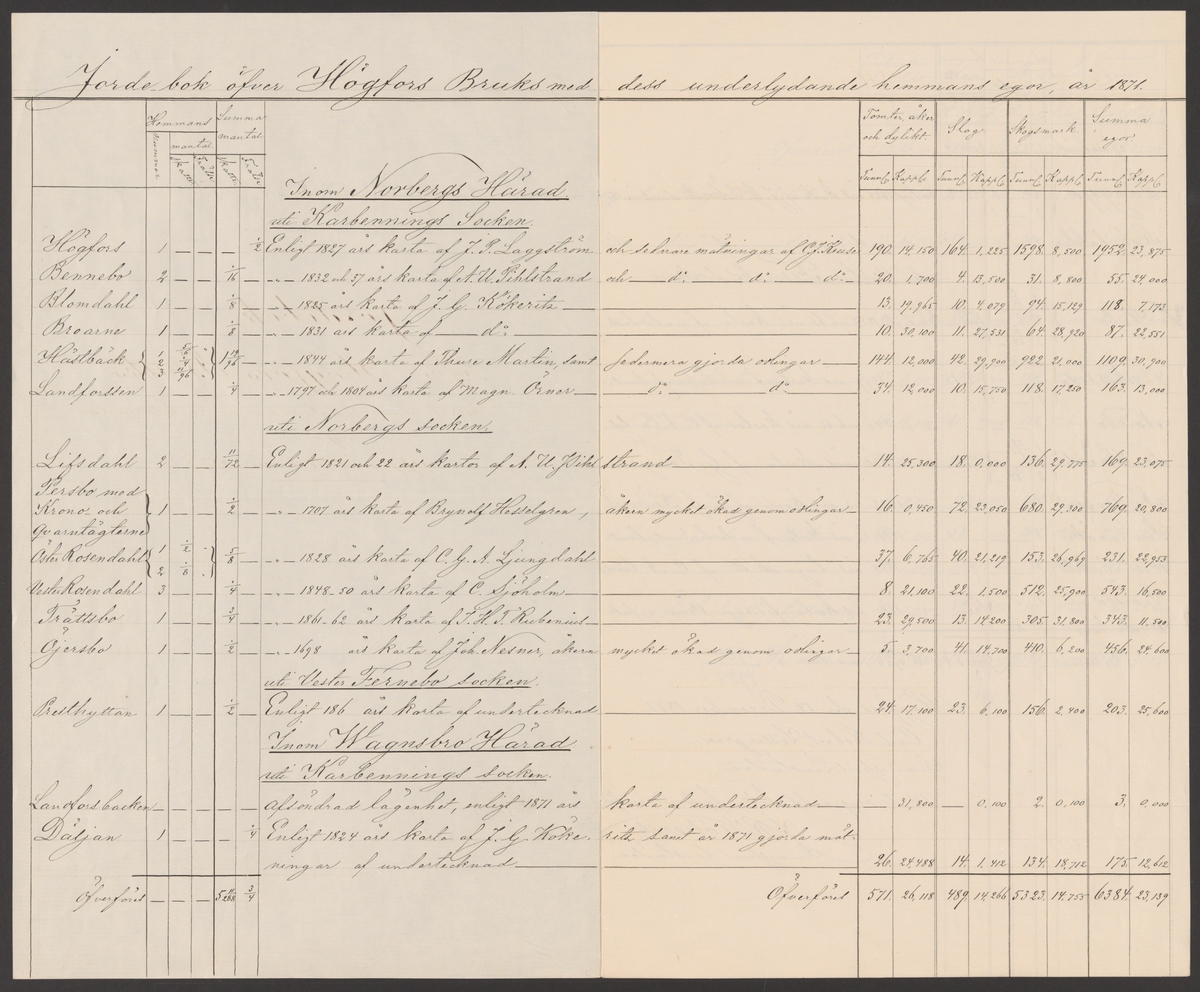 Jorde bok öfver Högfors Bruks med dess underlydande hemmans egor, år 1871.
Nummer Hemmans mantal. Skatte Frälse Summa mantal. Skatte Frälse Tomter, åker och dylikt. Slog. Skogsmark. Summa egor.
Tunnl. Kappl. Tunnl. Kappl. Tunnl. Kappl. Tunnl. Kappl.
Inom Norbergs Härad
uti Karbennings Socken.
Högfors 1 — — — 1/2 Enligt 1827 års karta af J. P. Laggström och sednare mätningar af 190. 14,150 164. 1,225 1598. 8,500 1952. 23,875
Bennebo 2 — — 1/16 — „ — 1832 och 37 års karta af A. U. Pihlstrand och — d:o — d:o — d:o 20. 1,700 4. 13,500 31. 8,800 55. 24,000
Blomdahl 1 — — 1/8 — „ — 1825 års karta af J. G. Kökeritz — 13. 19,965 10. 4,079 94. 15,129 118. 7,173
Broarne 1 — — 1/8 — „ — 1831 års karta af — d:o — 10. 30,100 11. 27,531 64. 28,920 87. 22,551
Hästbäck 1 2 3 — „ — 1844 års karta af Thure Martin, samt sedermera gjorda odlingar — 144. 12,000 42. 29,900 922. 21,000 1109. 30,900
Landforssen 1 — — 1/4 — „ — 1797 och 1804 års karta af Magn. Örner — d:o — d:o — 34. 12,000 10. 15,750 118. 17,250 163. 13,000
uti Norbergs socken.
Lifsdahl 2 — — 11/72 — Enligt 1821 och 22 års kartor af A. U. Pihlstrand — 14. 25,300 18. 0,000 136. 29,775 169. 23,075
Persbo med
Krono- och 1 — — 1/2 — „ — 1707 års karta af Brynolf Hesselgren, åkern mycket ökad genom odlingar — 16. 0,450 72. 23,050 680. 29,300 769. 20,800
Qvarntägterne
Öster Rosendahl 1 1/2 2 1/8 5/8 — „ — 1828 års karta af C. G. A. Ljungdahl — 37. 6,765 40. 21,219 153. 26,969 231. 22,953
Vester Rosendahl 3 — — 1/4 — „ — 1848-50 års karta af C. Sjöholm — 8. 21,100 22. 1,500 512. 25,900 543. 16,500
Trättsbo 1 — — 3/4 — „ — 1861-62 års karta af F. H. T. Rubenius — 23. 29,500 13. 14,200 305. 31,800 343. 11,500
Öjersbo 1 — — 1/2 — „ — 1698 års karta af Joh. Nesner, åkern mycket ökad genom odlingar — 5. 3,700 41. 14,700 410. 6,200 456. 24,600
uti Vester Fernebo socken.
Presthyttan 1 — — 1/2 — Enligt 186 års karta af undertecknad — 24. 17,100 23. 6,100 156. 2,400 203. 25,600
Inom Wagnsbro Härad
uti Karbennings socken.
Landforsbacken — — — — — afsöndrad lägenhet, enligt 1871 års karta af undertecknad — — 31,800 — 0,100 2. 0,100 3. 0,000
Daljan 1 — — — 1/4 Enligt 1824 års karta af J. G. Kökeritz samt år 1871 gjorda mät-
ningar af undertecknad — 26. 24,488 14. 1,412 134. 18,712 175. 12,612
Öfverföres — — — 5 11/288 3/4 Öfverföres 571. 26,118 489. 14,266 5323. 14,755 6384. 23,139